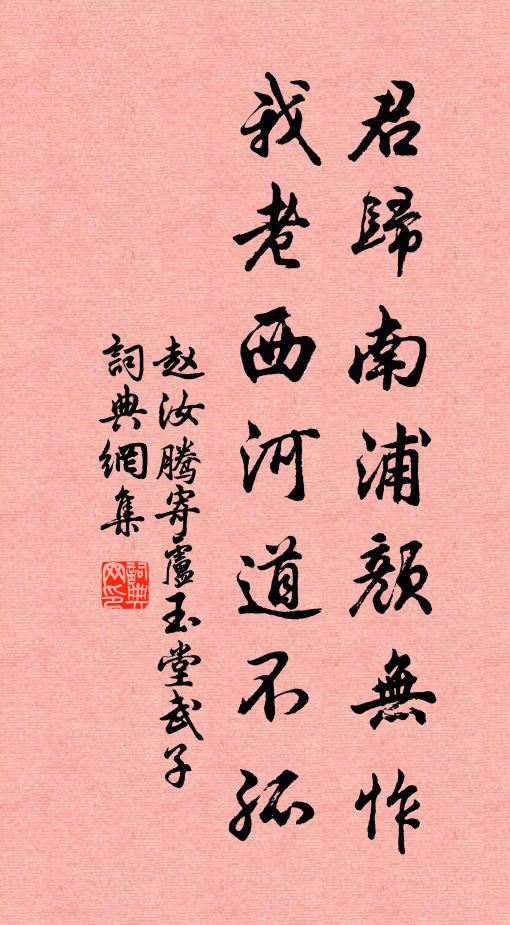 君歸南浦顏無怍
我老西河道不孤
赵汝騰寄盧玉堂武子
詞典網集
詞典網印